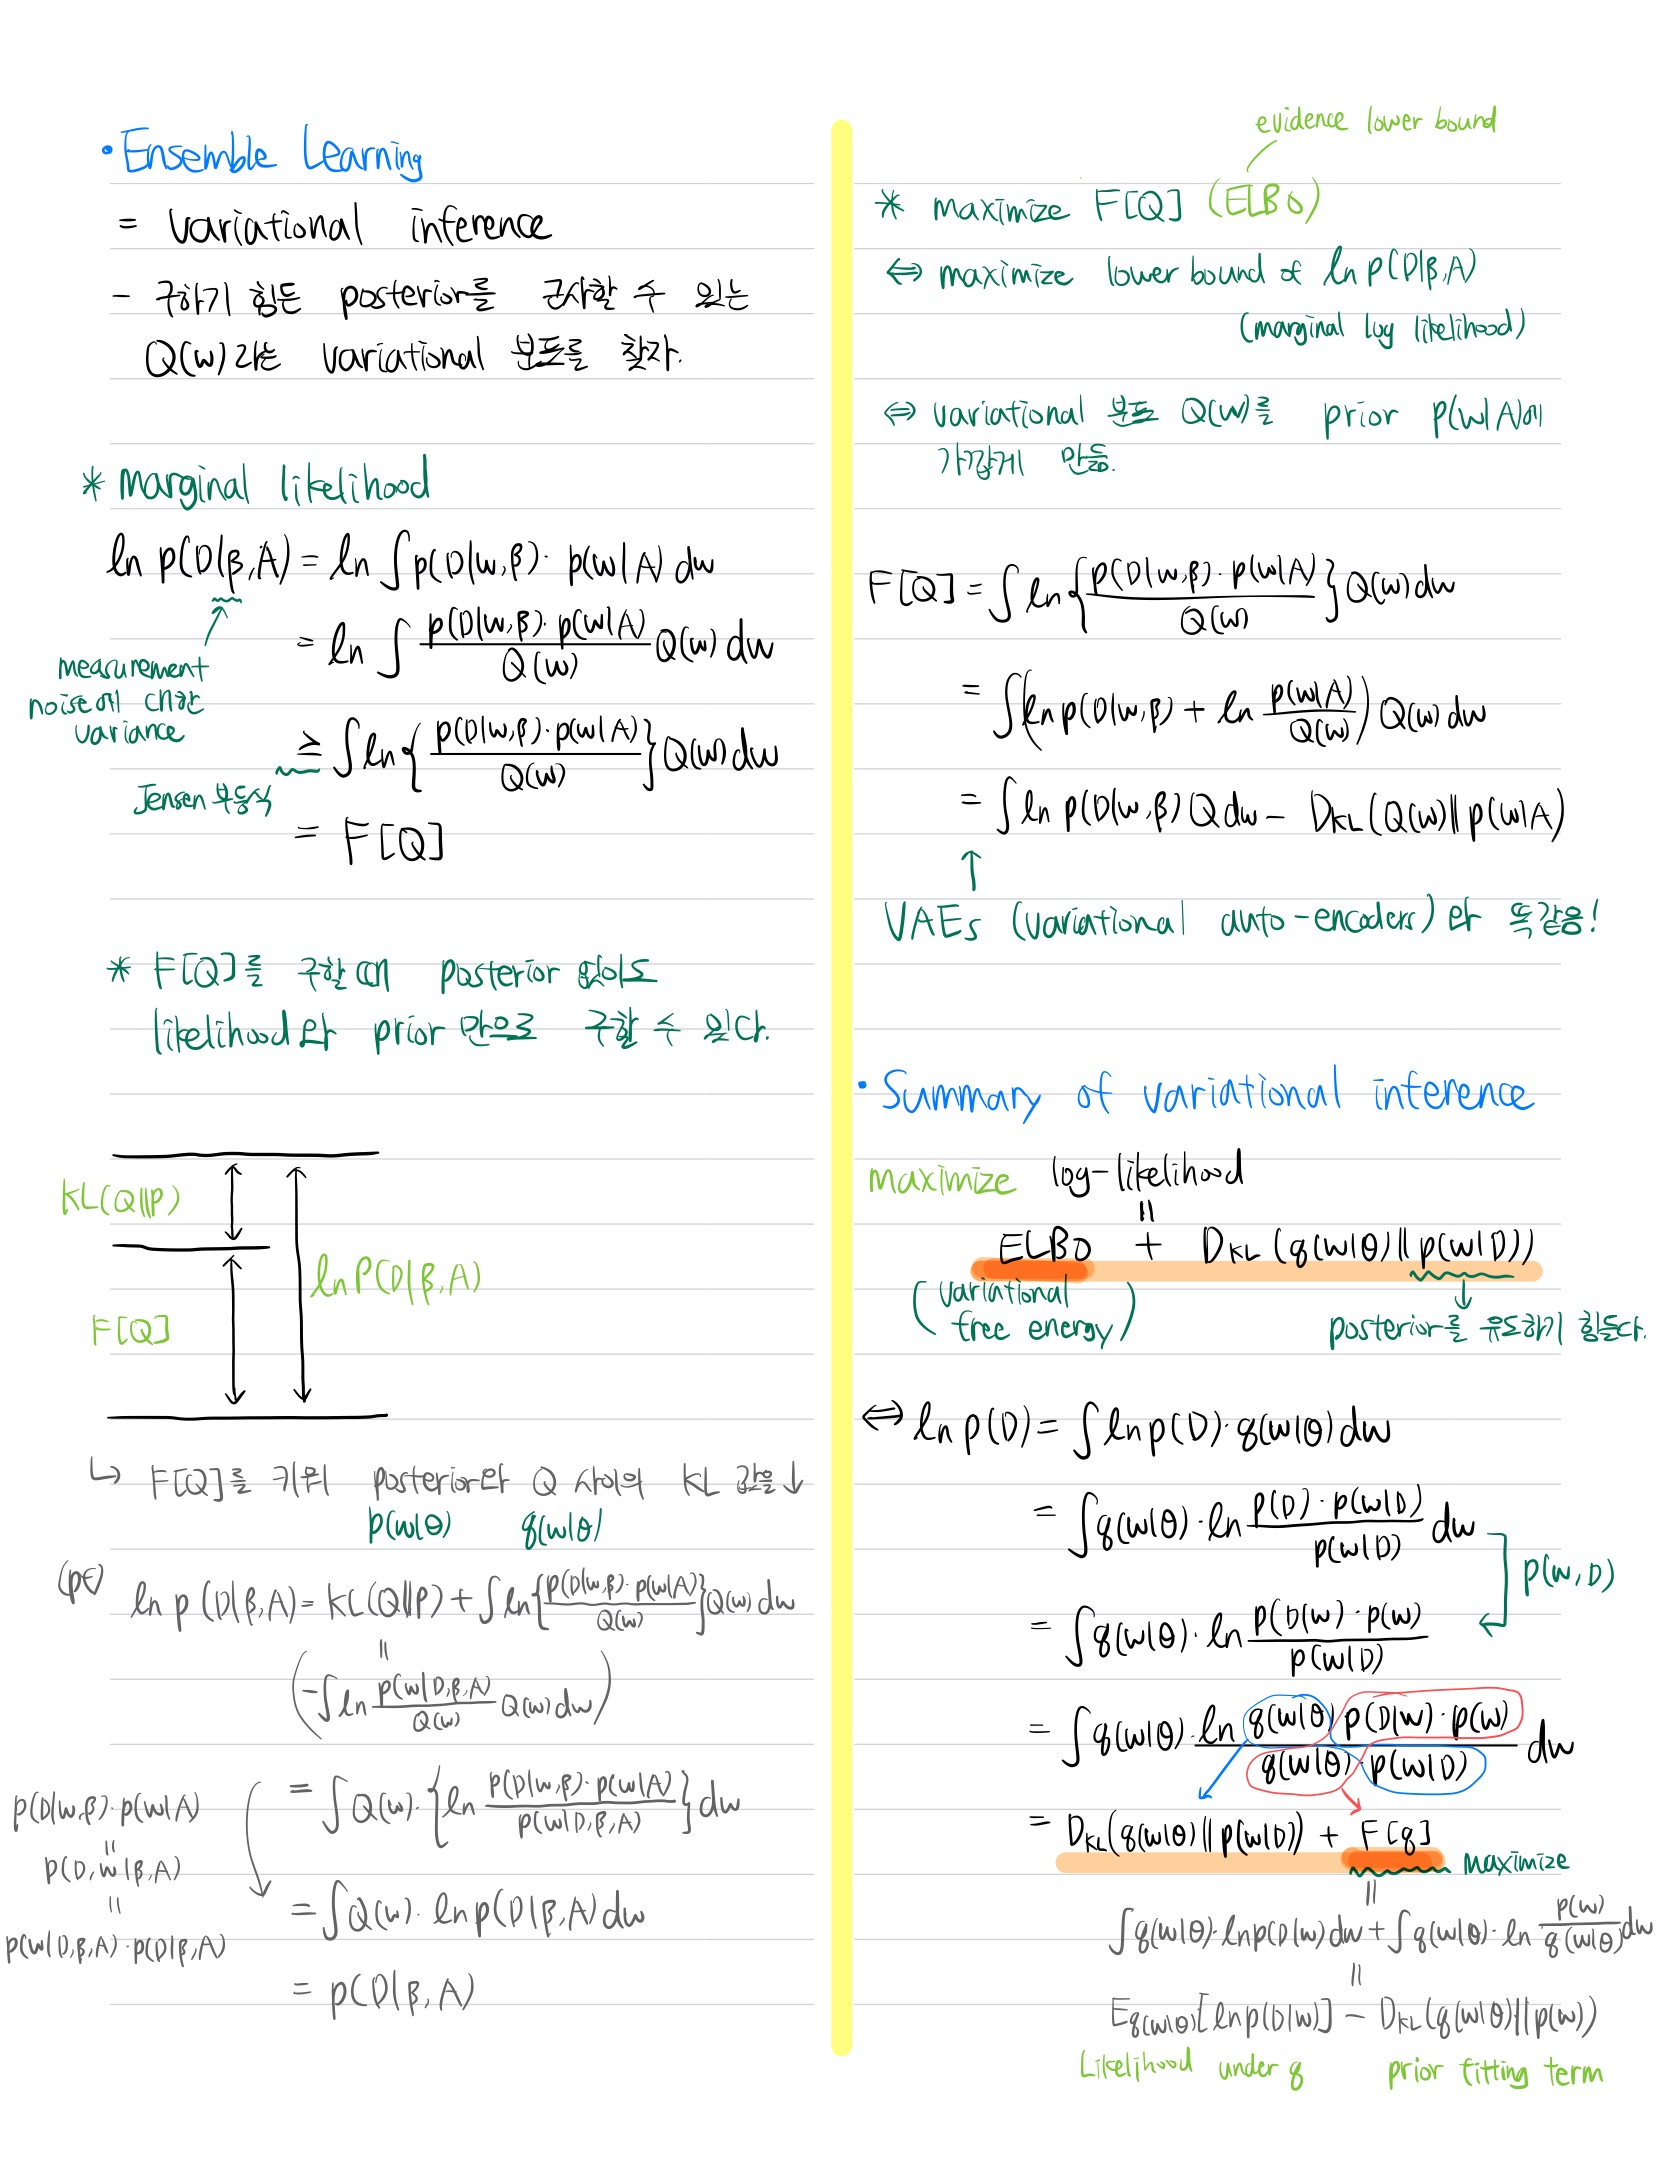 • Ensemble Learning
= variational inference
- 구하기 힘든 posterior를 근사할 수 있는
Q(w)라는 variational 분포를 찾자.
* marginal likelihood
ln p(D|β,A) = ln ∫ p(D|w,β)· p(w|A) dw
= ln ∫ p(D|w,β)· p(w|A) / Q(w) Q(w) dw
measurement
noise에 대한
variance
≥ ∫ ln { p(D|w,β)· p(w|A) / Q(w) } Q(w) dw
Jensen 부등식
= F[Q]
* F[Q]를 구할 때 posterior 없이도
likelihood와 prior 만으로 구할 수 있다.
KL(Q||P)
ln P(D|β,A)
F[Q]
↳ F[Q]를 키워 posterior와 Q 사이의 KL 값을 ↓
p(w|θ) q(w|θ)
(pf) ln p(D|β,A) = KL(Q||P) + ∫ ln { p(D|w,β)· p(w|A) / Q(w) } Q(w) dw
=
( -∫ ln p(w|D,β,A) / Q(w) Q(w) dw )
= ∫ Q(w)· { ln p(D|w,β)· p(w|A) / p(w|D,β,A) } dw
p(D|w,β)· p(w|A)
=
p(D,w|β,A)
=
p(w|D,β,A)· p(D|β,A)
= ∫ Q(w)· ln p(D|β,A) dw
= p(D|β,A)
evidence lower bound
* maximize F[Q] (ELBO)
⇔ maximize lower bound of ln p(D|β,A)
(marginal log likelihood)
⇔ variational 분포 Q(w)를 prior p(w|A)에
가깝게 만듦.
F[Q] = ∫ ln { p(D|w,β)· p(w|A) / Q(w) } Q(w) dw
= ∫ ( ln p(D|w,β) + ln p(w|A) / Q(w) ) Q(w) dw
= ∫ ln p(D|w,β) Q dw - DKL(Q(w)||p(w|A)
↑
VAEs (variational auto-encoders)와 똑같음!
• Summary of variational inference
maximize log-likelihood
=
ELBO + DKL(q(w|θ)||p(w|D))
(variational
free energy)
↓
posterior를 유도하기 힘들다.
⇔ ln p(D) = ∫ ln p(D)· q(w|θ) dw
= ∫ q(w|θ)· ln p(D)· p(w|D) / p(w|D) dw
p(w,D)
= ∫ q(w|θ)· ln p(D|w)· p(w) / p(w|D)
= ∫ q(w|θ)· ln q(w|θ) p(D|w)· p(w) / q(w|θ)· p(w|D) dw
= DKL(q(w|θ)||p(w|D)) + F[q]
maximize
=
∫ q(w|θ)· ln p(D|w) dw + ∫ q(w|θ)· ln p(w) / q(w|θ) dw
=
Eq(w|θ)[ln p(D|w)] - DKL(q(w|θ)||p(w))
Likelihood under q prior fitting term